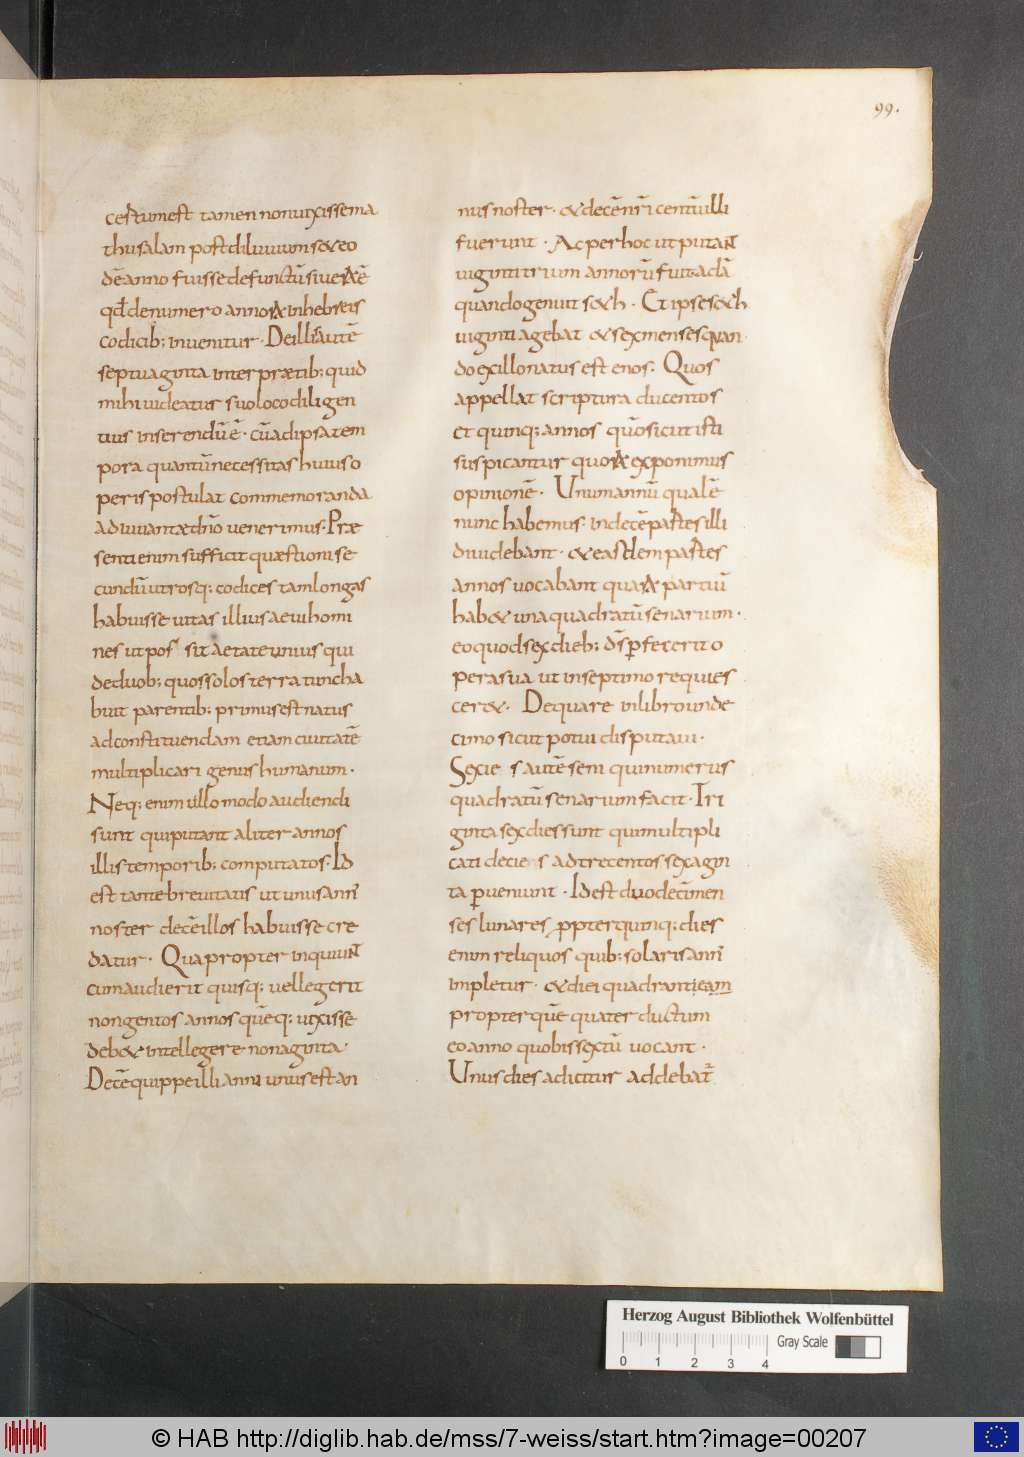 99.
cestum est tamen non uixisse ma
thusalam post diluuium sed eo
dē anno fuisse defunctū siue uerū ē
qđ de numero annorū in hebreis
codicib; inuenitur. De illis autē
septuaginta interpretib; quid
mihi uideatur suo loco diligen
tius inserendū ē. cū ad ipsa tem
pora quantū necessitas huius o
peris postulat commemoranda
adiuuante dn̄o uenerimus. Præ
senti enim sufficit quæstioni se
cundū utrosq; codices tam longas
habuisse uitas illius aeui homi
nes ut pos sit aetate unius qui
de duob; quos solos terra tunc ha
buit parentib; primus est natus
ad constituendam etiam ciuitatē
multiplicari genus humanum.
Neq; enim ullo modo audiendi
sunt qui putant aliter annos
illis temporib; computatos. Id
est tante breuitatis ut unus ann̄
noster decē illos habuisse cre
datur. Quapropter inquiunt
cum audierit quisq; uel legerit
nongentos annos quēq; uixisse
deb& intellegere nonaginta.
Decē quippe illi anni unus est an
nus noster. & decē nr̄i centū illi
fuerunt. Ac per hoc ut putant
uiginti trium annorū fuit adā
quando genuit seth. Et ipse seth
uiginti agebat & sex menses quan
do ex illo natus est enos. Quos
appellat scriptura ducentos
et quinq; annos quō sicut isti
suspicantur quorū exponimus
opinionē. Unum annū qualē
nunc habemus. in decē partes illi
diuidebant. & easdem partes
annos uocabant quarū partiū
hab& una quadratū senarium.
eo quod sex dieb; dš perfecerit o
pera sua ut in septimo requies
cer&. De qua re in libro unde
cimo sicut potui disputaui.
Sexie s autē seni qui numerus
quadratū senarium facit. Tri
ginta sex dies sunt qui multipli
cati decie s ad trecentos sexagin
ta perueniunt. Id est duodecī men
ses lunares propter quinq; dies
enim reliquos quib; solaris ann̄
impletur. & diei quadrantieam
propter quē quater ductum
eo anno quo bissextū uocant.
Unus dies adicitur addebat̄
Herzog August Bibliothek Wolfenbüttel
Gray Scale
0 1 2 3 4
© HAB http://diglib.hab.de/mss/7-weiss/start.htm?image=00207